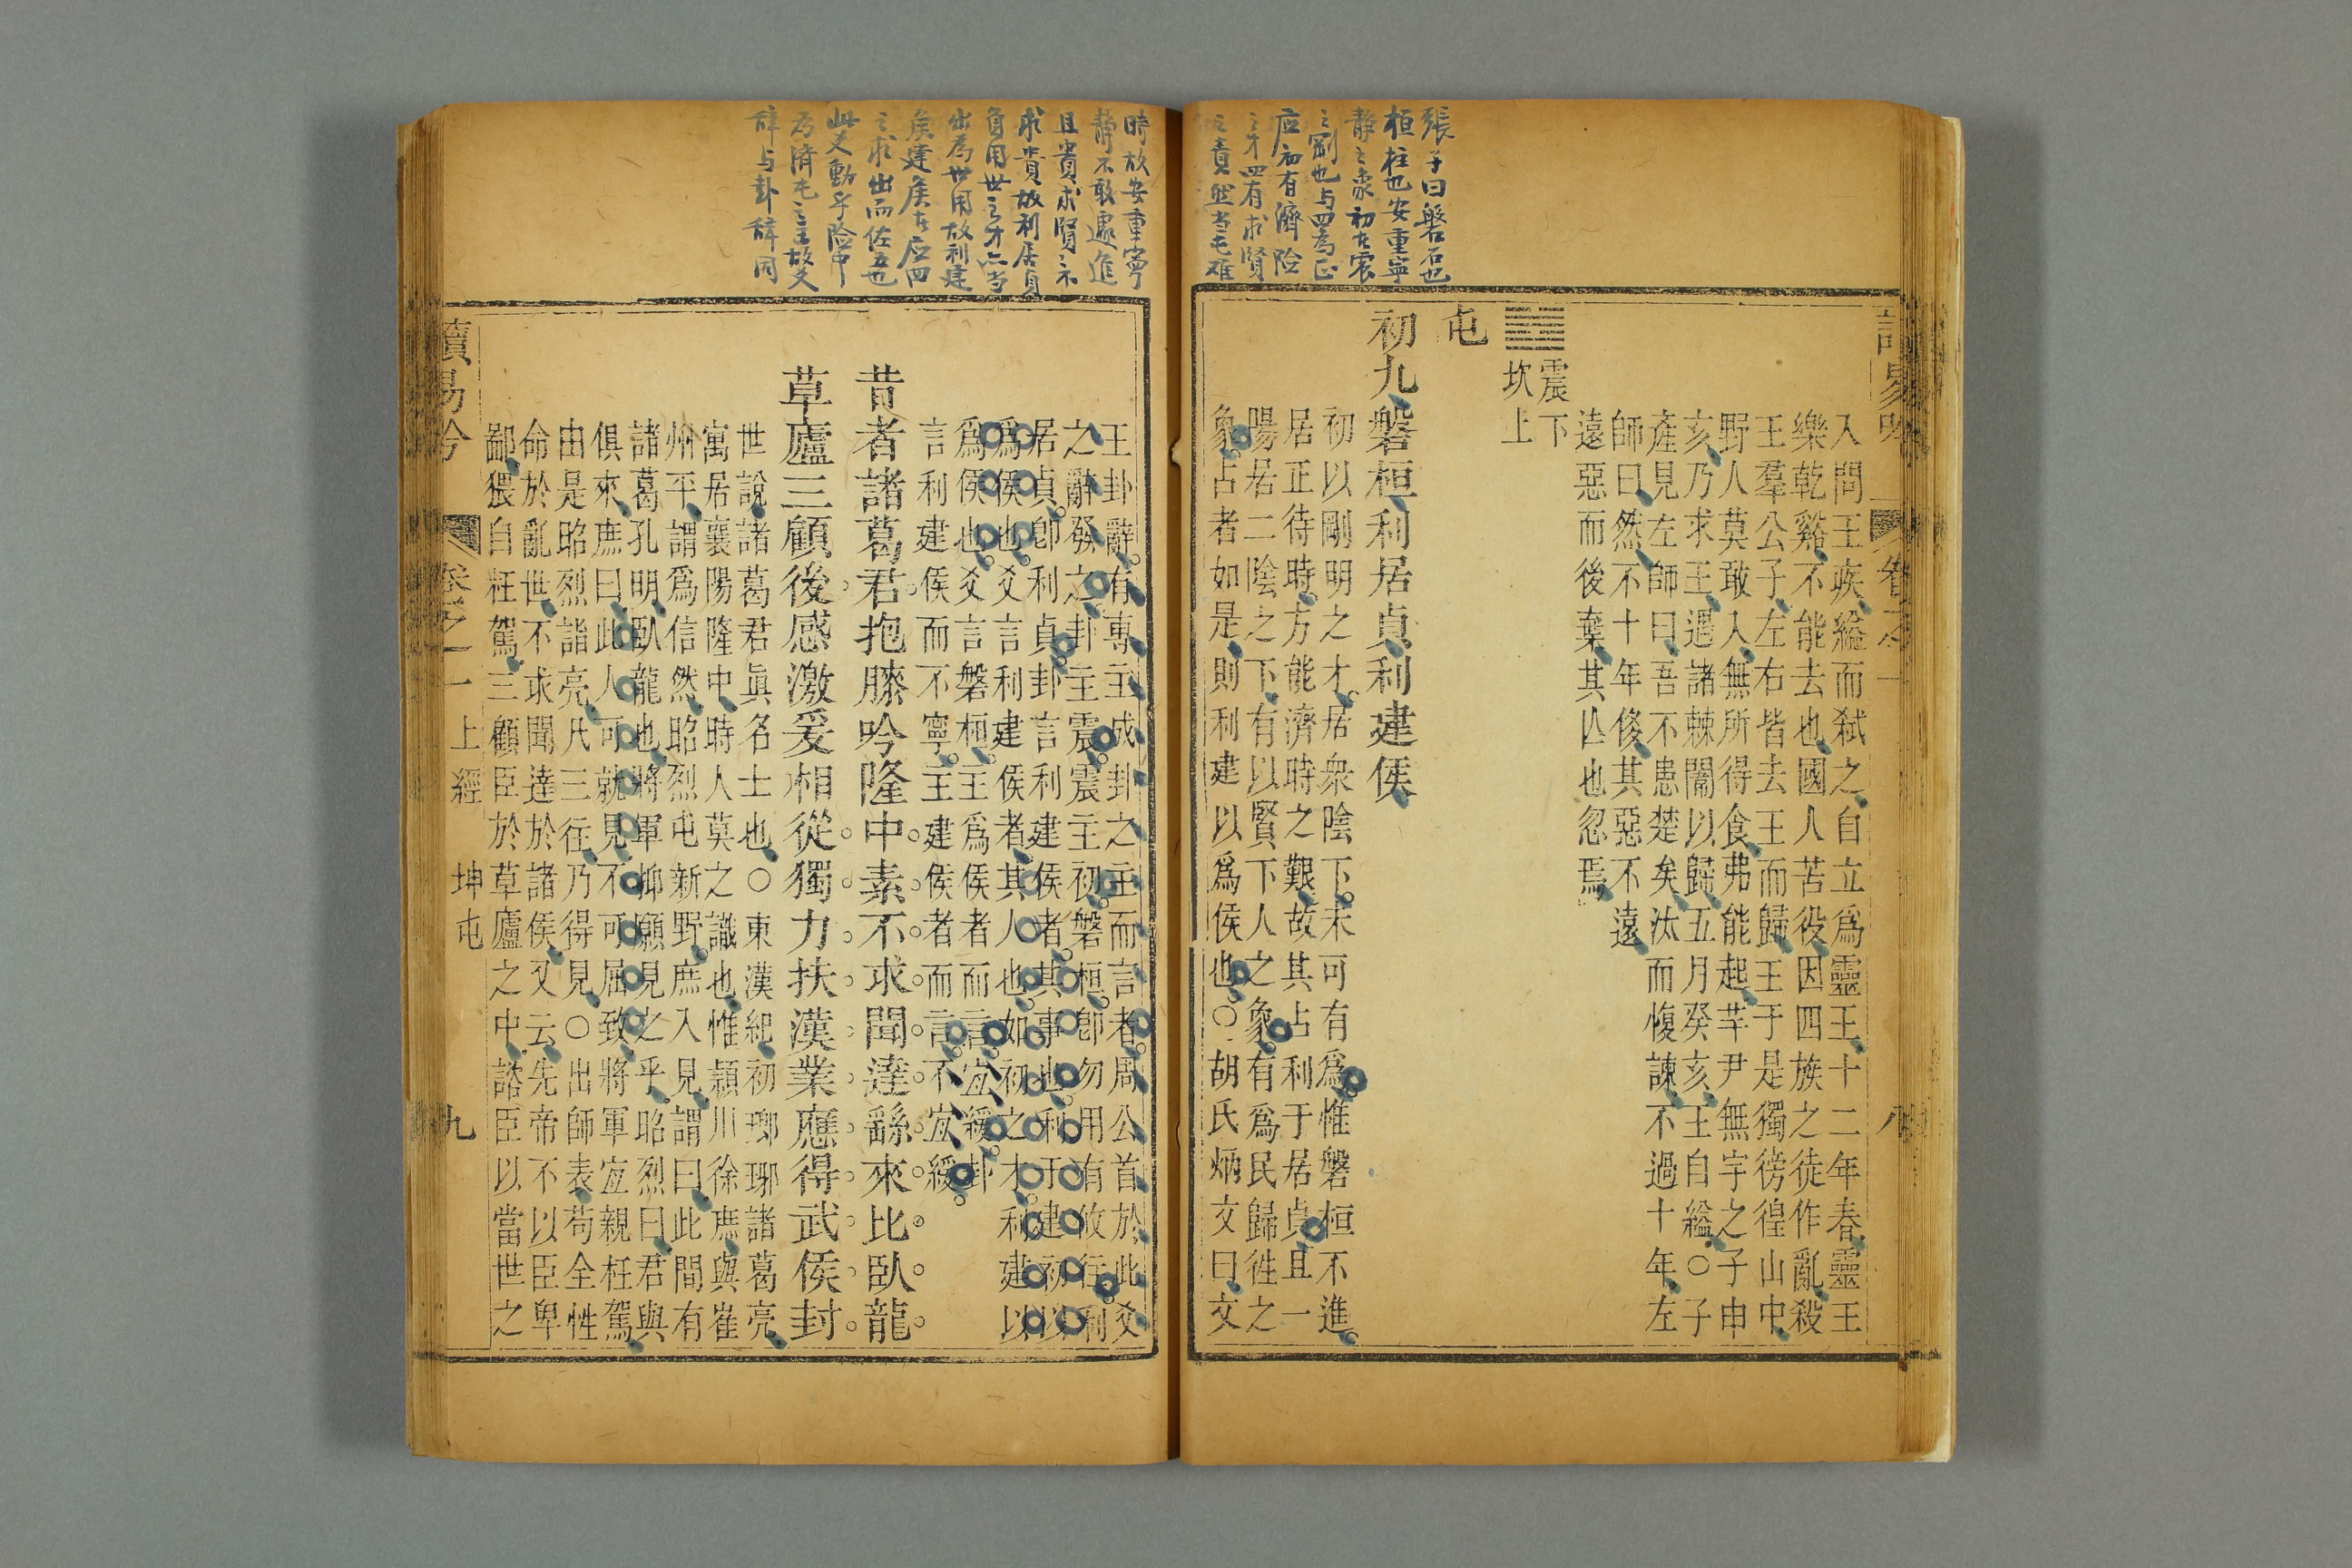 張子曰磐石也
桓柱也安重寧
靜之象初九震
之剛也与四為正
应初有濟险
之才四有求賢
之責然当屯难
入問王疾縊而弒之自立爲靈王十二年春靈王
樂乾谿不能去也國人苦役因四族之徒作亂殺
王羣公子左右皆去王而歸王于是獨徬徨山中
野人莫敢入無所得食弗能起芊尹無宇之子申
亥乃求王遇諸棘闈以歸五月癸亥王自縊○子
產見左師曰吾不患楚矣汰而愎諫不過十年左
師曰然不十年俊其惡不遠
遠惡而後棄其亾也忽焉
震下
坎上
屯
初九磐桓利居貞利建侯
初以剛明之才居衆陰下未可有爲惟磐桓不進
居正待時方能濟時之艱故其占利于居貞且一
陽居二陰之下有以賢下人之象有爲民歸徃之
象占者如是則利建以爲侯也○胡氏炳文曰文
八
時故安重寧
靜不敢遽進
且貴求賢不
求貴故利居貞
負用世之才亦当
出為世用故利建
侯建侯在应四
之求出而佐五也
此爻動乎险中
为濟屯之主故爻
辞与卦辞同
王卦辭有專主成卦之主而言者周公首於此爻
之辭發之卦主震震主初磐桓即勿用有攸往利
居貞即利貞卦言利建侯者其事也利于建初以
爲侯也爻言利建侯者其人也如初之才利建以
爲侯也爻言磐桓主爲侯者而言宜緩卦
言利建侯而不寧主建侯者而言不宜緩
昔者諸葛君抱膝吟隆中素不求聞達繇來比臥龍
草廬三顧後感激爰相從獨力扶漢業應得武侯封
世說諸葛君眞名士也○東漢紀初瑯琊諸葛亮
寓居襄陽隆中時人莫之識也惟潁川徐庶與崔
州平謂爲信然昭烈屯新野庶入見謂曰此間有
諸葛孔明臥龍也將軍抑願見之乎昭烈曰君與
俱來庶曰此人可就見不可屈致將軍宜親枉駕
由是昭烈詣亮凡三往乃得見○出師表苟全性
命於亂世不求聞達於諸侯又云先帝不以臣卑
鄙猥自枉駕三顧臣於草廬之中諮臣以當世之
讀易吟
卷之一
上經
坤屯
九